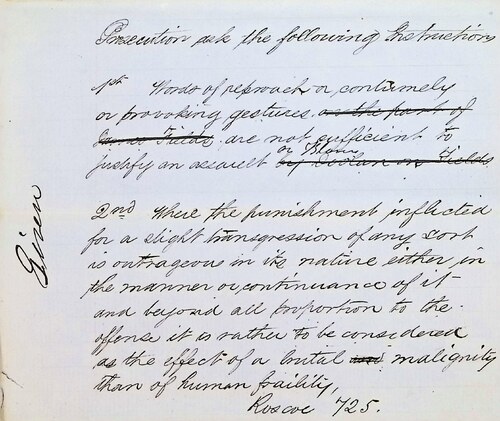 Prosecution ask the following Instructions
1st Words of reproach or contumely
or provoking gestures on the part of
James Fields are not sufficient to
or Blow
justify an assault by Doolan on Fields
Given
2nd Where the punishment inflicted
for a slight transgression of any sort
is outrageous in its nature either in
the manner or continuance of it
and beyond all proportion to the
offense it is rather to be considered
as the effect of a brutal malignity
than of human frailty,
Roscoe 725.